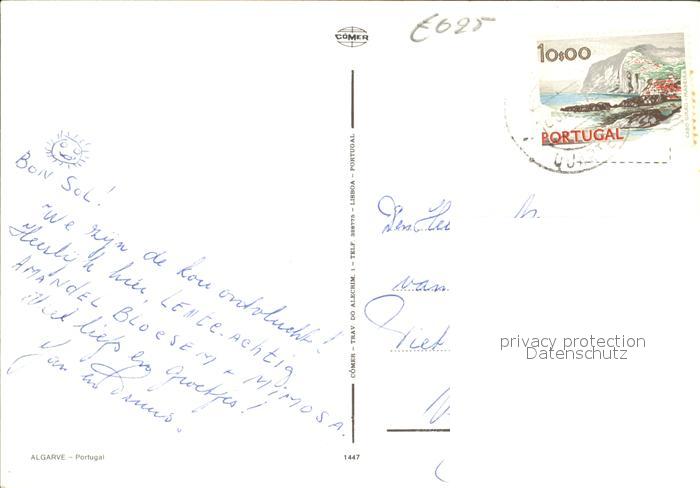 CÓMER
£025
10$00
PORTUGAL
BON SOL!
We zijn de kou ontvlucht!
Heerlijk hier, LENTE-ACHTIG
AMANDEL BLOESEM + MIMOSA.
Veel liefs en groetjes!
Jan en
CÓMER – TRAV. DO ALECRIM, 1 – TELF. 328775 – LISBOA – PORTUGAL
Den
van
Piet
privacy protection
Datenschutz
ALGARVE – Portugal
1447